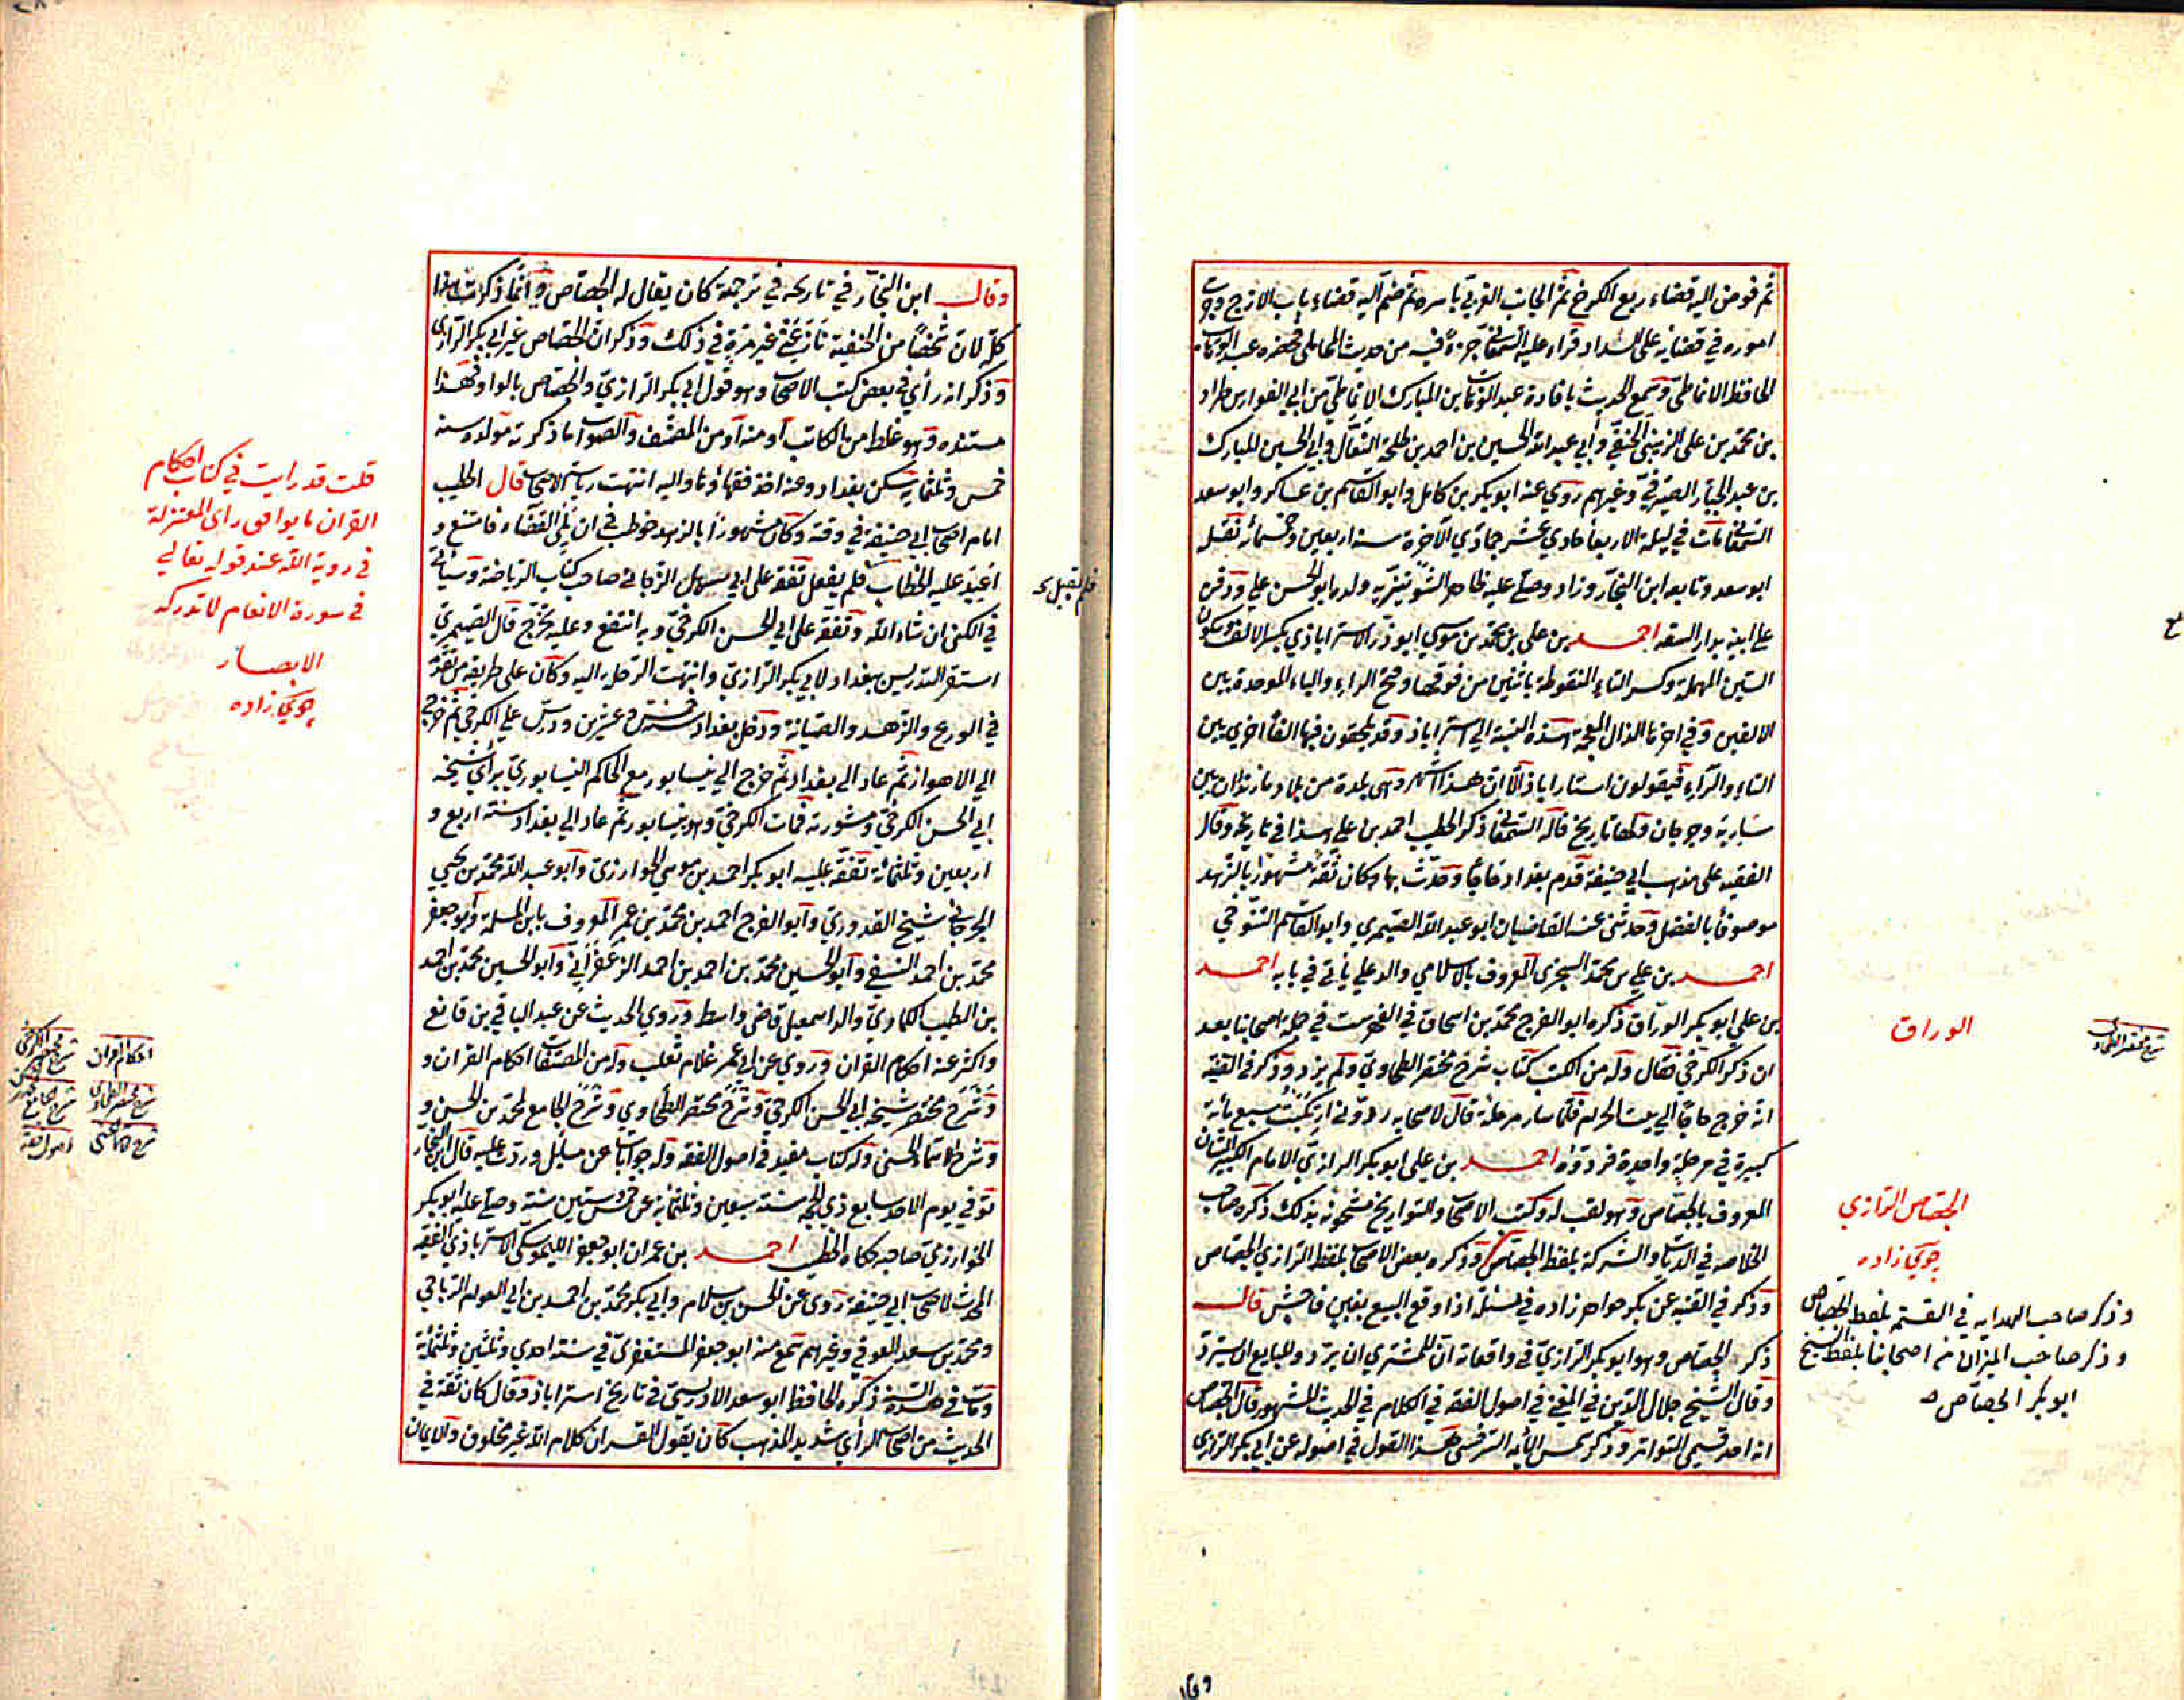 ثم فوض اليه قضاء ربع الكرخ ثم الجانب الغربي باسره ثم ضم اليه قضاء باب الازج وجرت
اموره في قضايه على السداد قراء عليه السمعاني جزءً فيه من حديث المحاملي فحضره عبد الوهاب
الحافظ الانماطي وسمع الحديث بافادة عبد الوهاب بن المبارك الانماطي من ابي الفوارس طراد
بن محمد بن علي الزينبي الحنفي وأبي عبد الله الحسين بن احمد بن طلحة النعال وابي الحسين المبارك
بن عبد الجبار الصيرفي وغيرهم روي عنه ابو بكر بن كامل وابو القاسم بن عساكر وابو سعد
السمعاني مات في ليلة الاربعا حادي عشر جمادي الآخرة سنة اربعين وخمسمائة نقله
ابو سعد وتابعه ابن النجار وزاد وصلي عليه ظاهر الشونيزيه ولده ابو الحسن علي ودفن
علي ابيه بدار السقه احمد بن علي بن محمد بن موسي ابو ذر الاسترابادي بكسر الالف وسكون
السين المهملة وكسر التاء المنقوطة باثنين من فوقها وفتح الراء والباء الموحدة بين
الالفين وفي اخرها الذال المعجمة هذه النسبة الي استراباد وقد يلحقون فيها الفًا اخري بين
التاء والراء فيقولون استاراباذ الا ان هذا اشهر وهي بلدة من بلاد مازندران بين
سارية وجرجان ولها تاريخ قاله السمعاني ذكر الخطيب احمد بن علي هذا في تاريخه وقال
الفقيه على مذهب ابي حنيفة قدم بغداد حاجًا وحدث بها وكان ثقة مشهورًا بالزهد
موصوفًا بالفضل وحدثني عنه القاضيان ابو عبد الله الصيمري وابو القاسم التنوخي
احمد بن علي بن محمد السجزي المعروف بالاسلامي والد علي ياتي في بابه احمد
بن علي ابو بكر الوراق ذكره ابو الفرج محمد بن اسحاق في الفهرست في جملة اصحابنا بعد
ان ذكر الكرخي فقال وله من الكتب كتاب شرح مختصر الطحاوي ولم يزد وذكر في القنية
انه خرج حاجًا الي بيت الحرام فلما سار مرحلة قال لاصحابه ردوني ارتكبت سبع مائة
كبيرة في مرحلة واحدة فردوه احمد بن علي ابو بكر الرازي الامام الكبير الشان
المعروف بالجصاص وهو لقب له وكتب الاصحاب والتواريخ مشحونه بذلك ذكره صاحب
الخلاصه في الديات والشركة بلفظ الجصاص وذكره بعض الاصحاب بلفظ الرازي الجصاص
وذكر في القنيه عن بكر خواهر زاده في مسئلة اذا وقع البيع بغبن فاحش قال
ذكر الجصاص وهو ابو بكر الرازي في واقعاته ان للمشتري ان يرد وللبايع ان يسترد
وقال الشيخ جلال الدين في المغني في اصول الفقه في الكلام في الحديث المشهور قال الجصاص
انه احد قسمي المتواتر وذكر شمس الأيمه السرخسي هذا القول في اصوله عن ابي بكر الرازي
الوراق
شرح مختصر الطحاوي
الجصاص الرازي
جوي زاده
وذكر صاحب الهدايه في القسمة بلفظ الجصاص
وذكر صاحب الميزان من اصحابنا بلفظ الشيخ
ابو بكر الجصاص
وقال
وقال ابن النجار في تاريخه في ترجمة كان يقال له الجصاص وانما ذكرت هذا
كله لان شخصًا من الحنفية نازعني غير مرة في ذلك وذكر ان الجصاص غير ابي بكر الرازي
وذكر انه رأي في بعض كتب الاصحاب وهو قول ابي بكر الرازي والجصاص بالواو فهذا
مستنده وهو غلط من الكاتب او منه او من المصنف والصواب ما ذكرته مولده سنة
خمس وثلثمايه سكن بغداد وعنه اخذ فقهاؤها واليه انتهت رياسة الاصحاب قال الخطيب
امام اصحاب ابي حنيفة في وقته وكان مشهورًا بالزهد خوطب في ان يلي القضاء فامتنع و
اعيد عليه الخطاب فلم يفعل تفقه على ابي سهل الزجاجي صاحب كتاب الرياضة وسيأتي
فلم يقبل
في الكني ان شاء الله وتفقه على ابي الحسن الكرخي وبه انتفع وعليه تخرج قال الصيمري
استقر التدريس ببغداد لابي بكر الرازي وانتهت الرحلة اليه وكان على طريقة من تقدمه
في الورع والزهد والصيانة ودخل بغداد سنة خمس وعشرين ودرس علي الكرخي ثم خرج
الي الاهواز ثم عاد الي بغداد ثم خرج الي نيسابور مع الحاكم النيسابوري براي شيخه
ابي الحسن الكرخي ومشورته فمات الكرخي وهو بنيسابور ثم عاد الي بغداد سنة اربع و
اربعين وثلثمائة تفقه عليه ابو بكر احمد بن موسي الخوارزمي وابو عبد الله محمد بن يحيي
الجرجاني شيخ القدوري وابو الفرج احمد بن محمد بن عمر المعروف بابن المسلمة وابو جعفر
محمد بن احمد النسفي وابو الحسين محمد بن احمد بن احمد الزعفراني وابو الحسين محمد بن احمد
بن الطيب الكماري والد اسمعيل قاضي واسط وروي الحديث عن عبد الباقي بن قانع
واكثر عنه احكام القران وروي عن ابي عمر غلام ثعلب وله من المصنفات احكام القران و
وشرح مختصر شيخه ابي الحسن الكرخي وشرح مختصر الطحاوي وشرح الجامع لمحمد بن الحسن و
وشرح الاسماء الحسني وله كتاب مفيد في اصول الفقه وله جوابات عن مسايل وردت عليه قال ابن النجار
توفي يوم الاحد سابع ذي الحجة سنة سبعين وثلثمائة عن خمس وستين سنة وصلي عليه ابو بكر
الخوارزمي صاحبه حكاه الخطيب احمد بن عمران ابو جعفر الليموسكي الاسترابادي الفقيه
المحدث لاصحاب ابي حنيفة روي عن الحسن بن سلام وابي بكر محمد بن احمد بن ابي العوام الرياحي
ومحمد بن سعد العوفي وغيرهم سمع منه ابو جعفر المستغفري في سنة احدي وثلثين وثلثمائة
ومات في هذه السنة ذكره الحافظ ابو سعد الادريسي في تاريخ استراباذ وقال كان ثقة في
الحديث من اصحاب الرأي شديد المذهب كان يقول القران كلام الله غير مخلوق والايمان
قلت قد رايت في كتاب احكام
القران ما يوافق راي المعتزلة
في روية الله عند قوله تعالي
في سورة الانعام لا تدركه
الابصار
جوي زاده
احكام القران
شرح مختصر الكرخي
شرح مختصر الطحاوي
شرح الجامع
شرح الاسماء الحسني
اصول الفقه